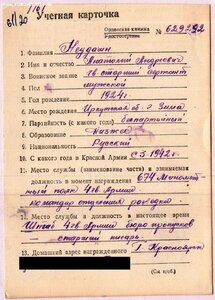 Учетная карточка
Орденская книжка № 629292
1. Фамилия
2. Имя и отчество Анатолий Андреевич
3. Воинское звание гв старший сержант
4. Пол мужской
5. Год рождения 1924г.
6. Место рождения Иркутская об. г. Зима
7. Партийность (с какого года) беспартийный
8. Образование Низшее
9. Национальность Русский
10. С какого года в Красной Армии с 1942г.
11. Место службы (наименование части) и занимаемая
должность в момент награждения 674
полк 4 гв Армии
командир отделения разведки
12. Место службы и должность в настоящее время
Штаб 4 гв Армии бюро пропусков
старший писарь
13. Домашний адрес награжденного г. Красноярск